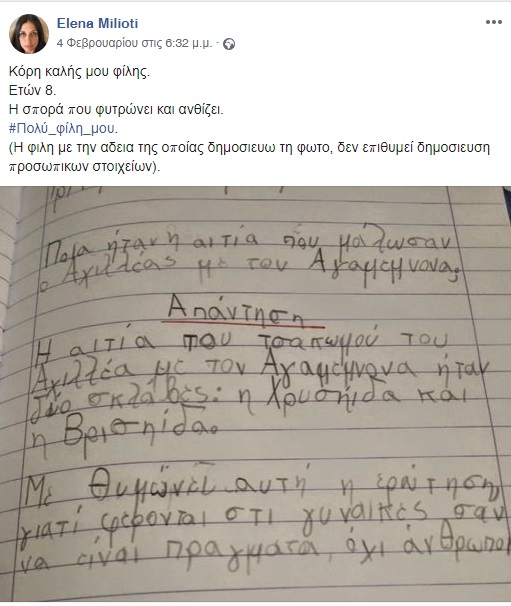 Elena Milioti
4 Φεβρουαρίου στις 6:32 μ.μ. ·
Κόρη καλής μου φίλης.
Ετών 8.
Η σπορά που φυτρώνει και ανθίζει.
#Πολύ_φίλη_μου.
(Η φιλη με την αδεια της οποίας δημοσιευω τη φωτο, δεν επιθυμεί δημοσιευση
προσωπικων στοιχείων).
Ποια ήταν η αιτία που μάλωσαν
ο Αχιλλέας με τον Αγαμεμνονα;
Απάντηση
Η αιτία που τσαπωμού του
Αχιλλέα με τον Αγαμέμνονα ήταν
δύο σκλάβες: η Χρυσηίδα και
η Βρισηίδα.
Με θυμώνει αυτή η ερώτηση
γιατί φέρονται στι γυναίκες σαν
να είναι πραγματα, όχι άνθρωποι